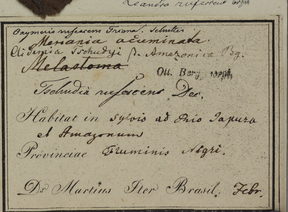 Leandra rufescens
Oxymeris rufescens Triana
Meriania acuminata
Clidemia Tschudyi β. Amazonica
Melastoma
Tschudia rufescens Dec.
Habitat in sylvis ad Rio Japura
et Amazonum
Provinciae Fluminis Nigri.
Dr Martius Iter Brasil. Febr.